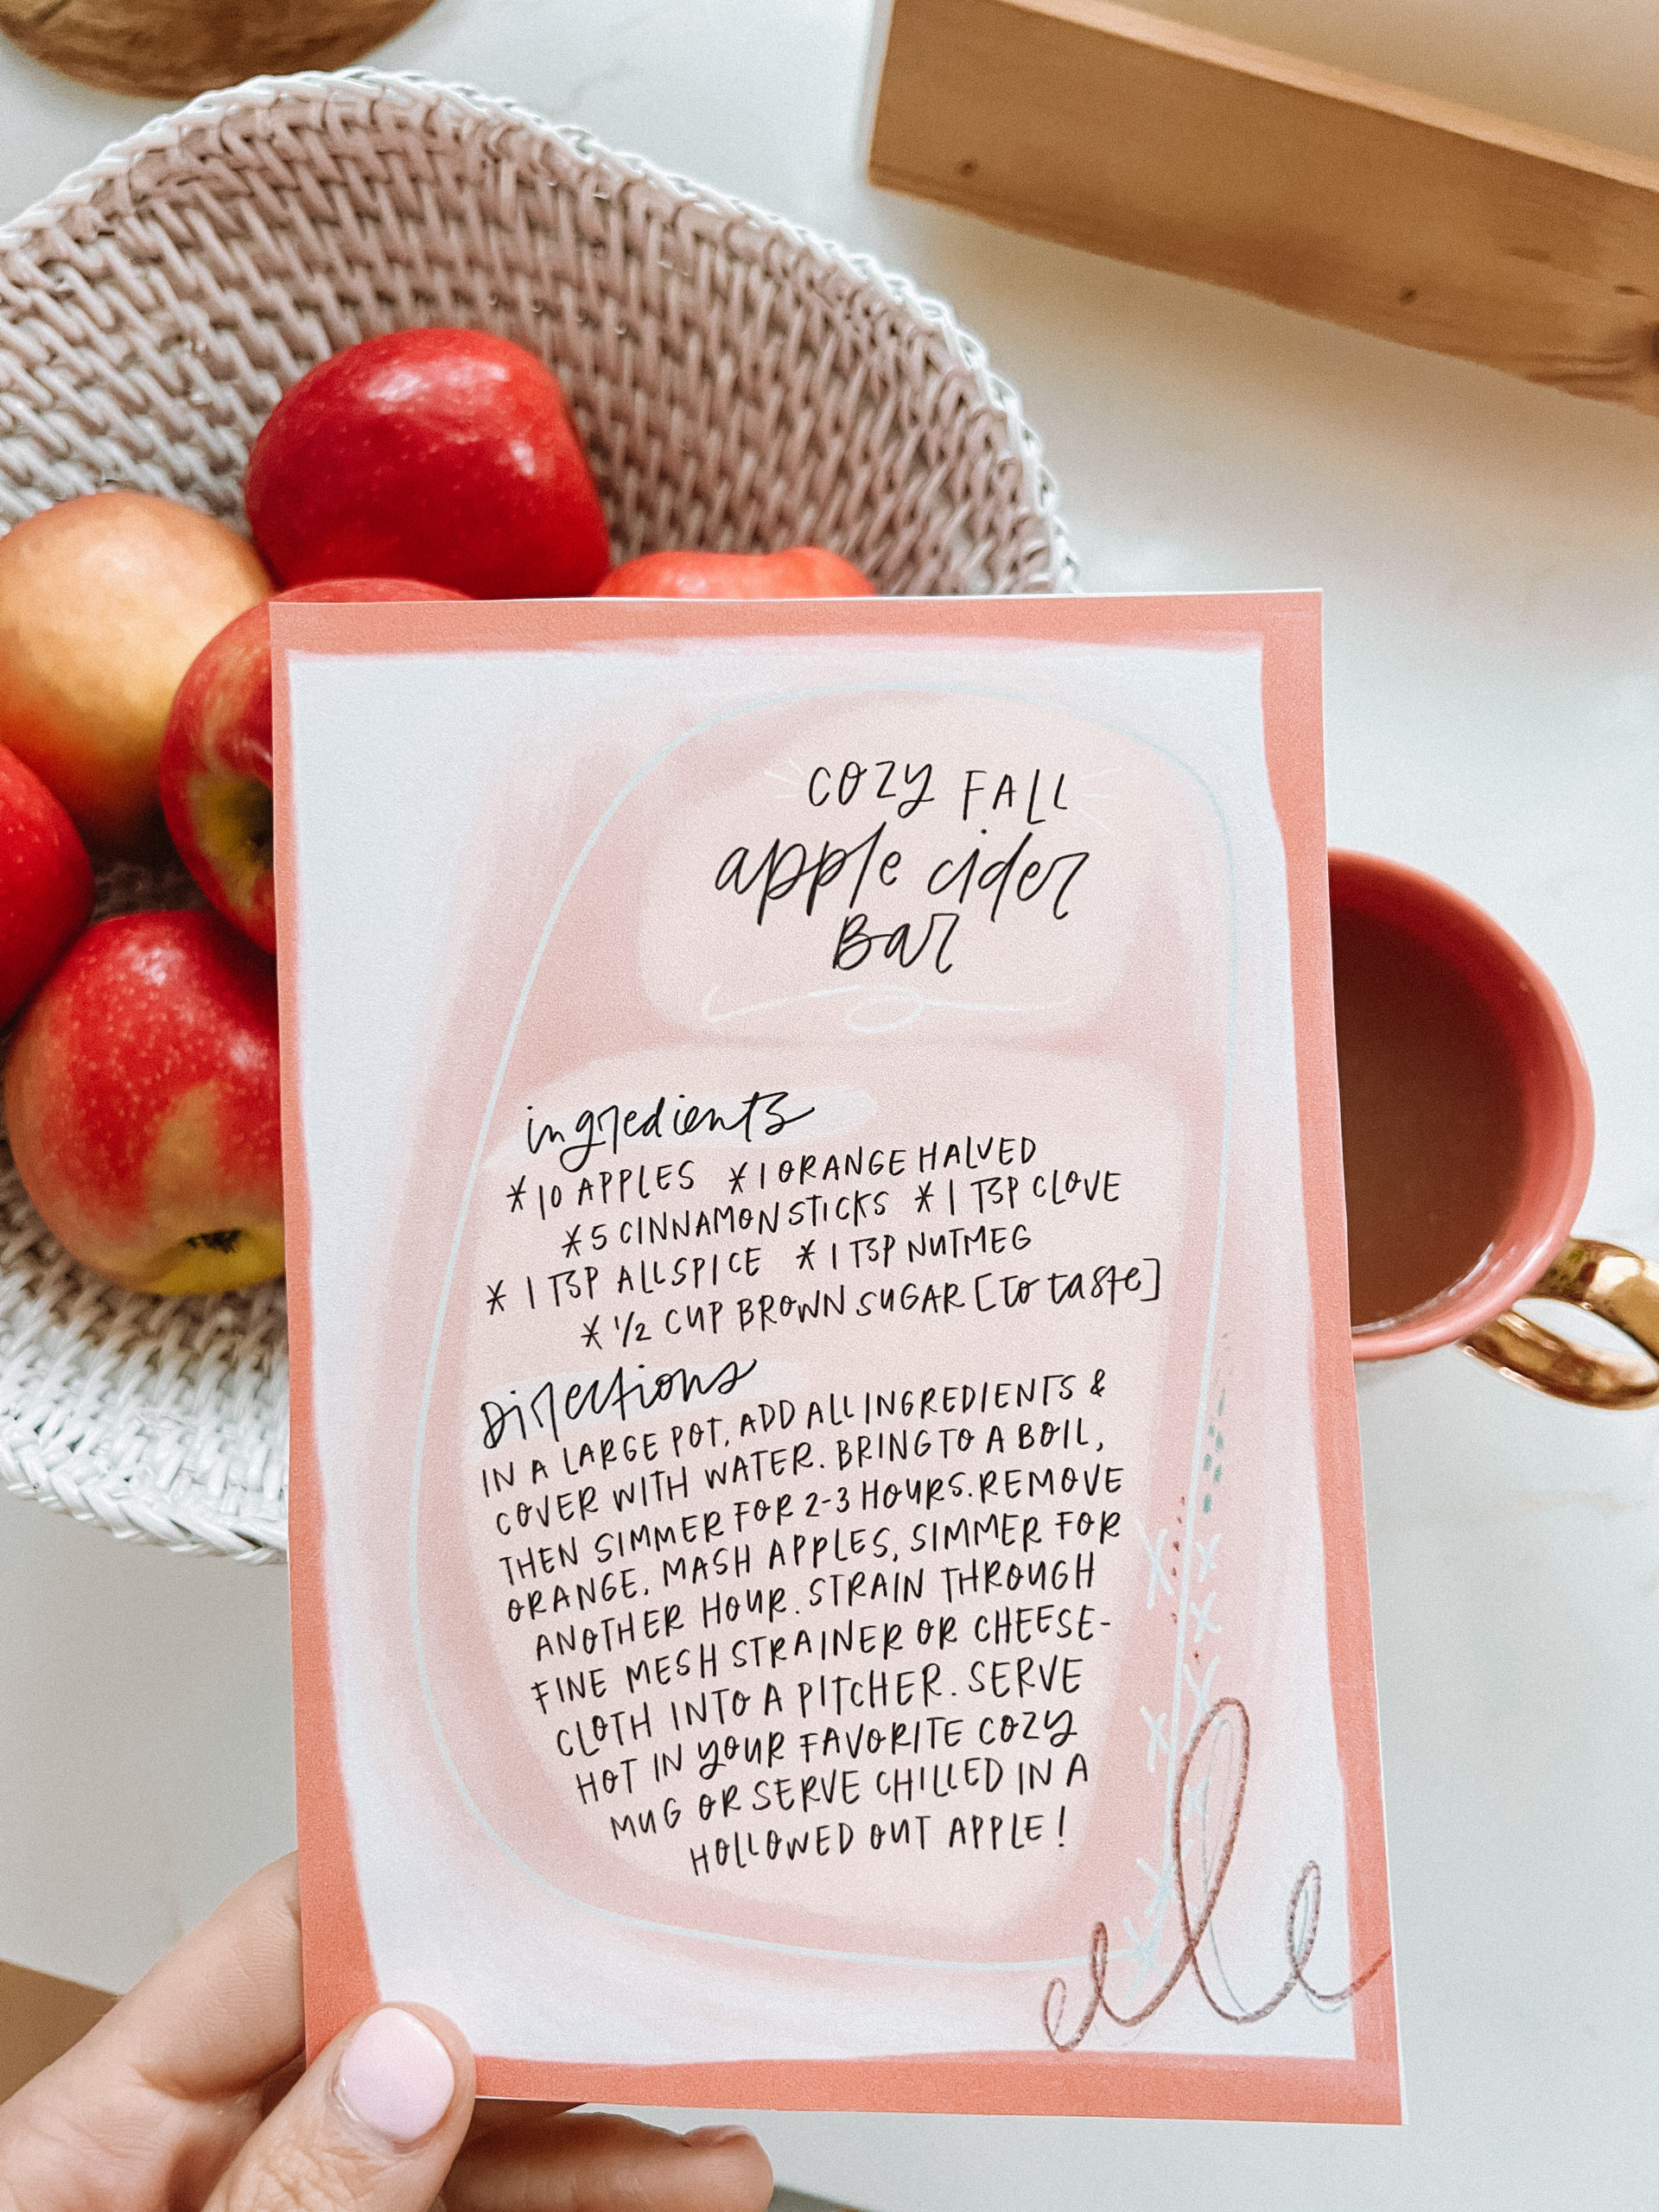 COZY FALL
apple cider
Bar
ingredients
* 10 APPLES * 1 ORANGE HALVED
* 5 CINNAMON STICKS * 1 TSP CLOVE
* 1 TSP ALLSPICE * 1 TSP NUTMEG
* 1/2 CUP BROWN SUGAR [to taste]
Directions
IN A LARGE POT, ADD ALL INGREDIENTS &
COVER WITH WATER. BRING TO A BOIL,
THEN SIMMER FOR 2-3 HOURS. REMOVE
ORANGE, MASH APPLES, SIMMER FOR
ANOTHER HOUR. STRAIN THROUGH
FINE MESH STRAINER OR CHEESE-
CLOTH INTO A PITCHER. SERVE
HOT IN YOUR FAVORITE COZY
MUG OR SERVE CHILLED IN A
HOLLOWED OUT APPLE!